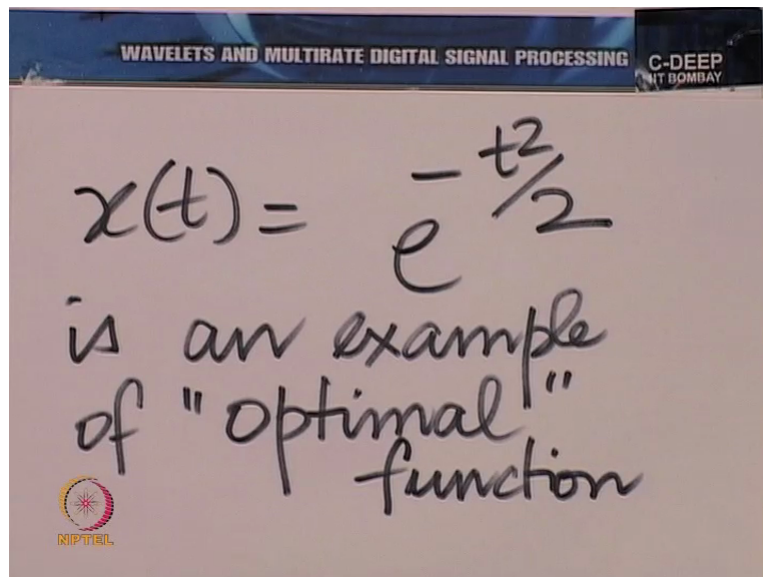 WAVELETS AND MULTIRATE DIGITAL SIGNAL PROCESSING
C-DEEP
IIT BOMBAY
x(t) = e^{-t²/2}
is an example
of "optimal"
function
NPTEL